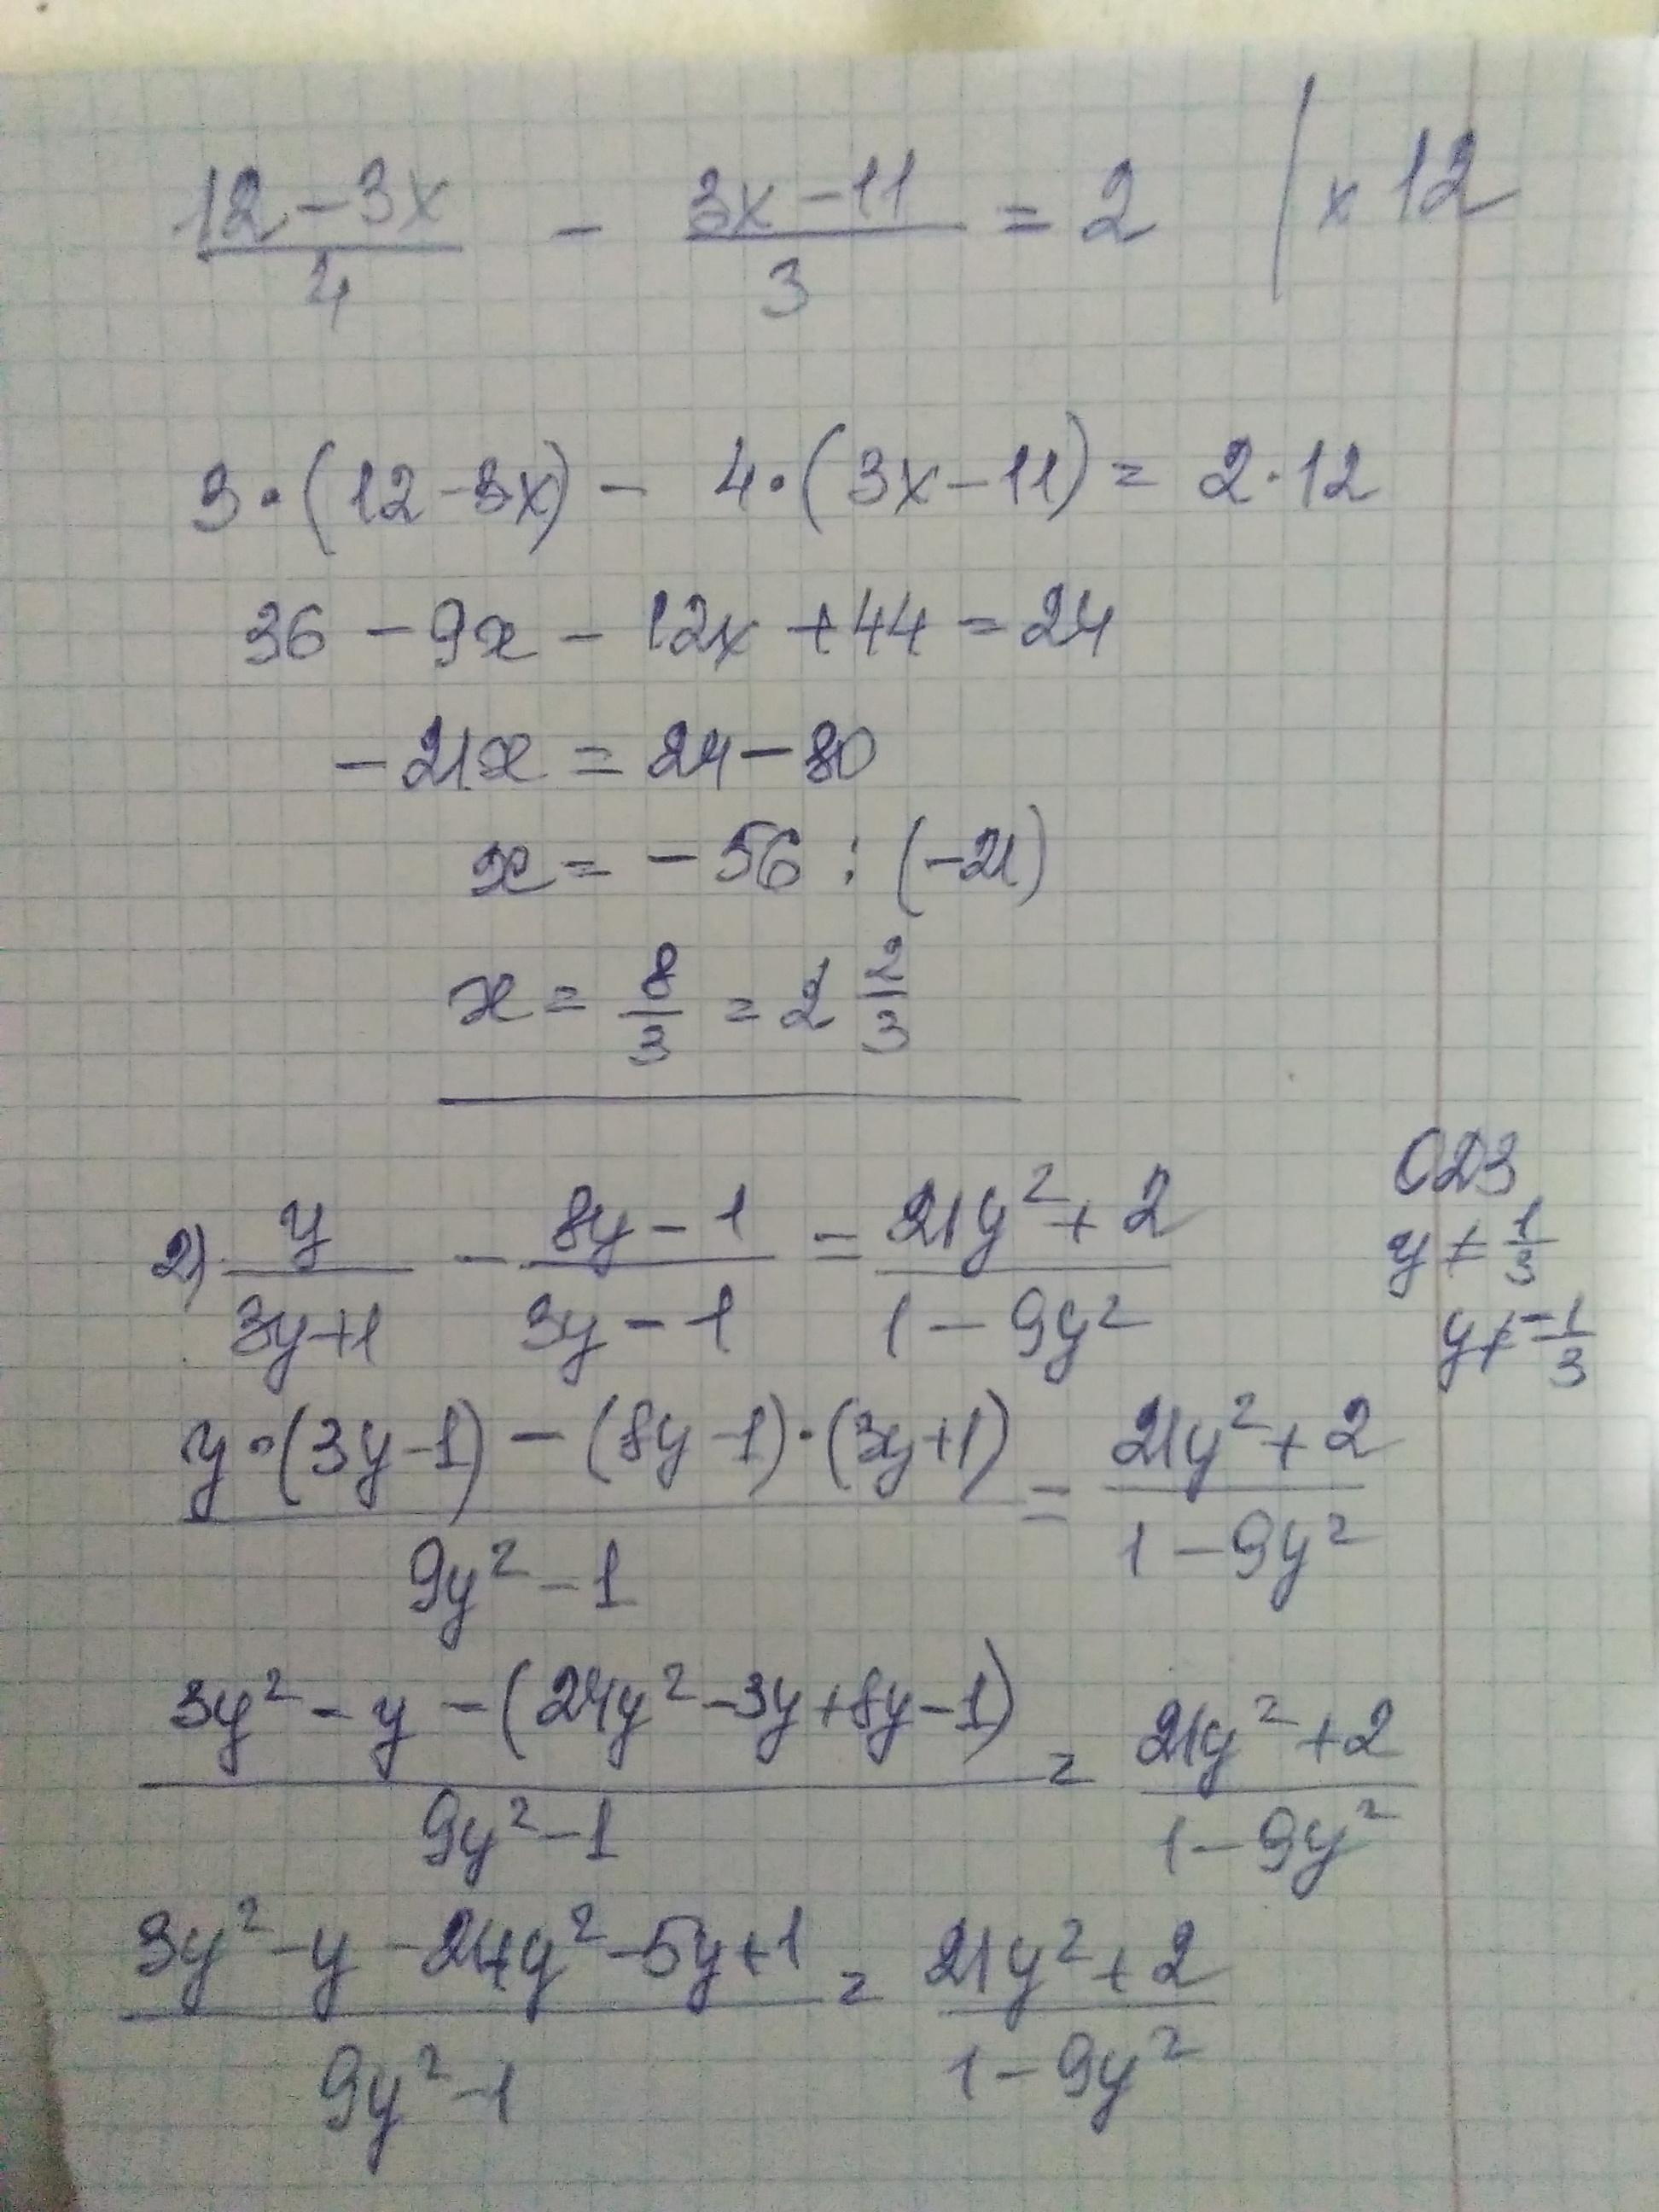 (12-3x)/4 - (3x-11)/3 = 2 | × 12
3·(12-3x) - 4·(3x-11) = 2·12
36 - 9x - 12x + 44 = 24
-21x = 24 - 80
x = -56 : (-21)
x = 8/3 = 2 2/3
ОДЗ
y ≠ 1/3
y ≠ -1/3
2) y/(3y+1) - (8y-1)/(3y-1) = (21y²+2)/(1-9y²)
(y·(3y-1) - (8y-1)·(3y+1))/(9y²-1) = (21y²+2)/(1-9y²)
(3y²-y-(24y²-3y+8y-1))/(9y²-1) = (21y²+2)/(1-9y²)
(3y²-y-24y²-5y+1)/(9y²-1) = (21y²+2)/(1-9y²)